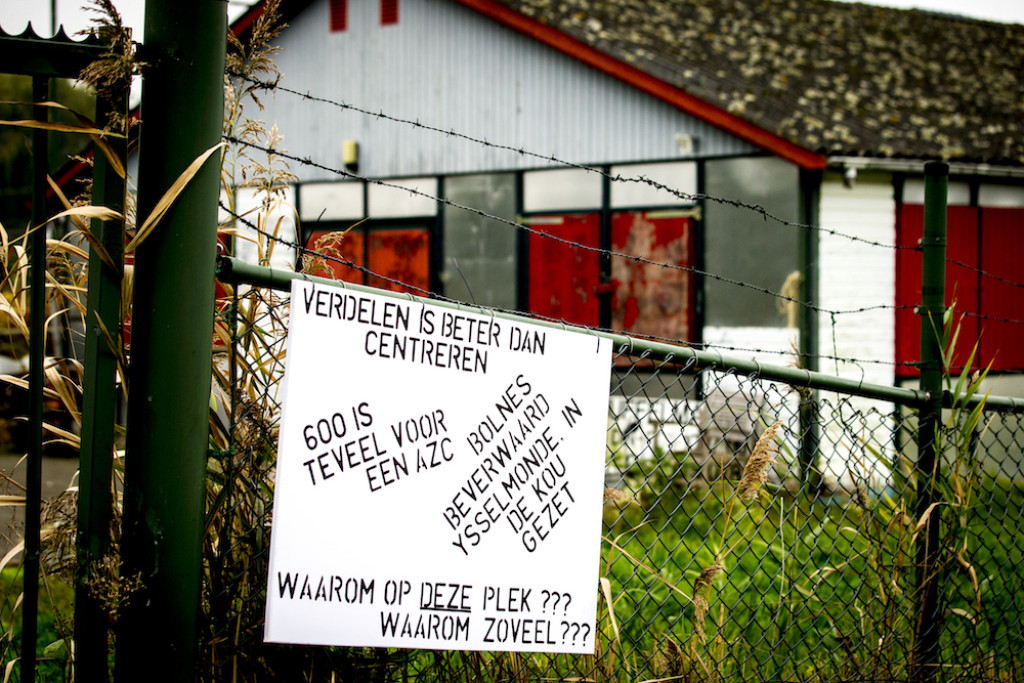 VERDELEN IS BETER DAN
CENTREREN
600 IS
TEVEEL VOOR
EEN AZC
BOLNES
BEVERWAARD
YSSELMONDE. IN
DE KOU
GEZET
WAAROM OP DEZE PLEK ???
WAAROM ZOVEEL ???